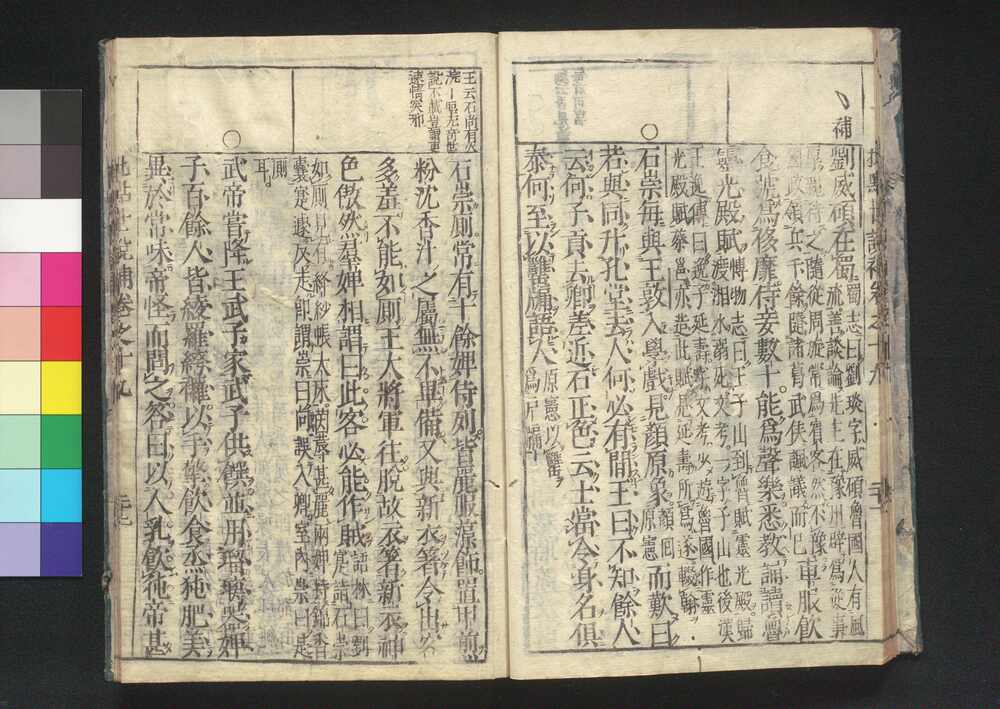 補
劉威碩在蜀
蜀志曰劉琰字威碩魯國人有風
流善談論先主在豫州辟為從事
厚親待之隨從周旋常為賓客然不豫
國政領兵千餘隨諸葛武侯諷議而已
車服飲
食號為侈靡侍妾數十能為聲樂悉教誦讀魯
靈光殿賦
博物志曰王子山到魯賦靈光殿歸
渡湘水溺死文考一字子山也後漢
王逸傳曰逸子延壽字文考少遊魯國作靈
光殿賦蔡邕亦造此賦見延壽所為遂輟翰
石崇每與王敦入學戲見顏原象
顏回
原憲
而歎曰
若與同升孔堂去人何必有間王曰不知餘人
云何子貢去卿差近石正色云士當令身名俱
泰何至以甕牖語人
原憲以甕
為戶牖
王云石尚有
石崇廁常有十餘婢侍列皆麗服藻飾置甲煎
粉沈香汁之屬無不畢備又與新衣著令出客
多羞不能如廁王大將軍往脫故衣著新衣神
色傲然羣婢相謂曰此客必能作賊
語林曰劉
寔詣石崇
如廁見有絳紗帳大床茵蓐甚麗兩婢持錦香
囊寔遽反走即謂崇曰向誤入卿室內崇曰是
廁
耳
武帝嘗降王武子家武子供饌並用瑠璃器婢
子百餘人皆綾羅絝𧟌以手擎飲食烝㹠肥美
異於常味帝怪而問之答曰以人乳飲㹠帝甚
批點世說補卷之十九